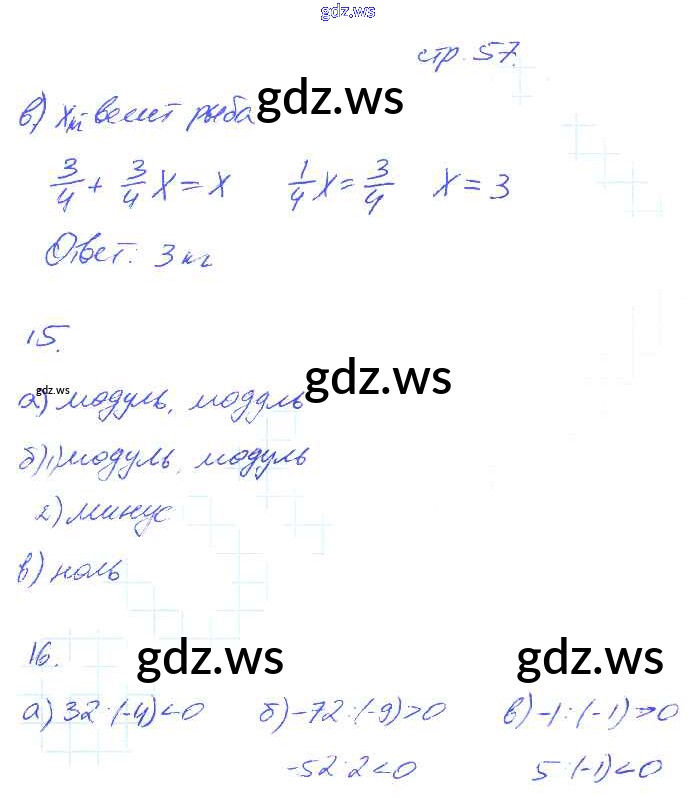 gdz.ws
стр. 57.
в) x кг - весит рыба gdz.ws
3/4 + 3/4 x = x   1/4 x = 3/4   x = 3
Ответ: 3 кг
15.
gdz.ws gdz.ws
а) модуль, модуль
б) 1) модуль, модуль
2) минус
в) ноль
16. gdz.ws gdz.ws
а) 32 : (-4) < 0   б) -72 : (-9) > 0   в) -1 : (-1) > 0
-52 : 2 < 0   5 : (-1) < 0